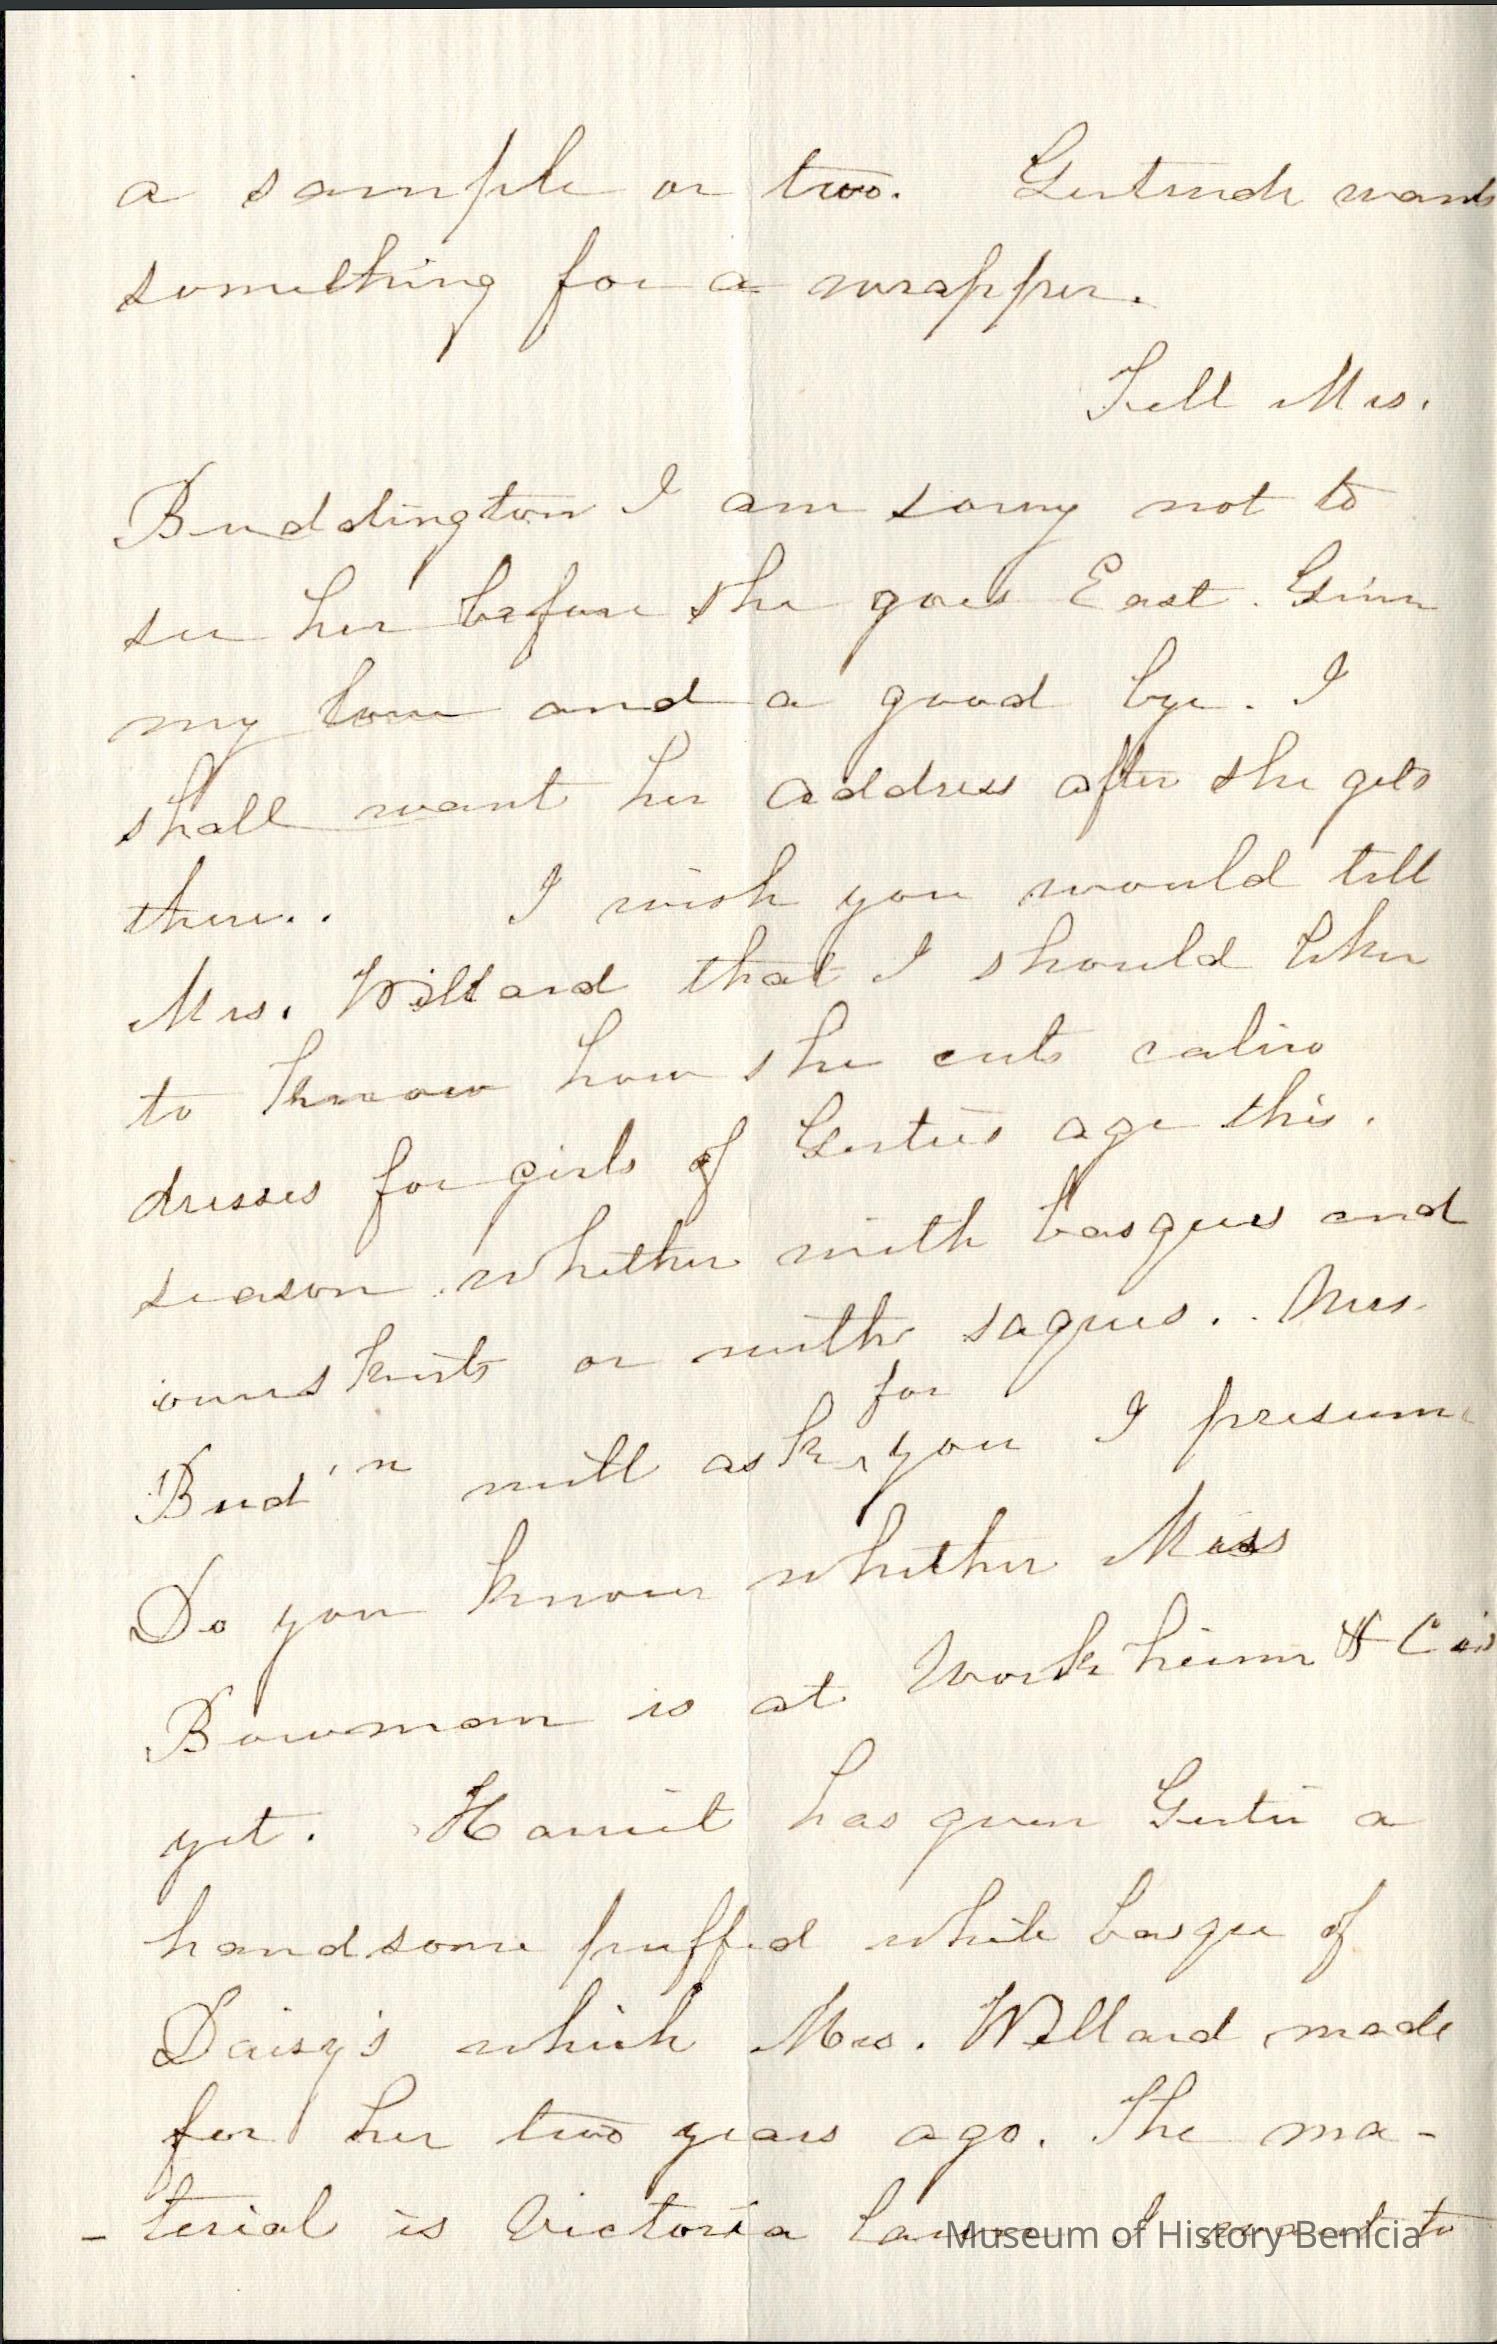 a sample or two. Gertrude wants
something for a wrapper.
Tell Mrs.
Buddington I am sorry not to
see her before she goes East. Give
my love and a good bye. I
shall want her address after she gets
there.. I wish you would tell
Mrs. Willard that I should like
to know how she cuts calico
dresses for girls of Gertie's age this.
season whether with basques and
overskirts or with saques.. Mrs.
for
Bud'n will ask you I presume
Do you know whether Miss
Bowman is at & Co's
yet. Harriet has given Gertie a
handsome puffed white basque of
Daisy's which Mrs. Willard made
for her two years ago. The ma-
-terial is Victoria Lawn I want to
Museum of History Benicia